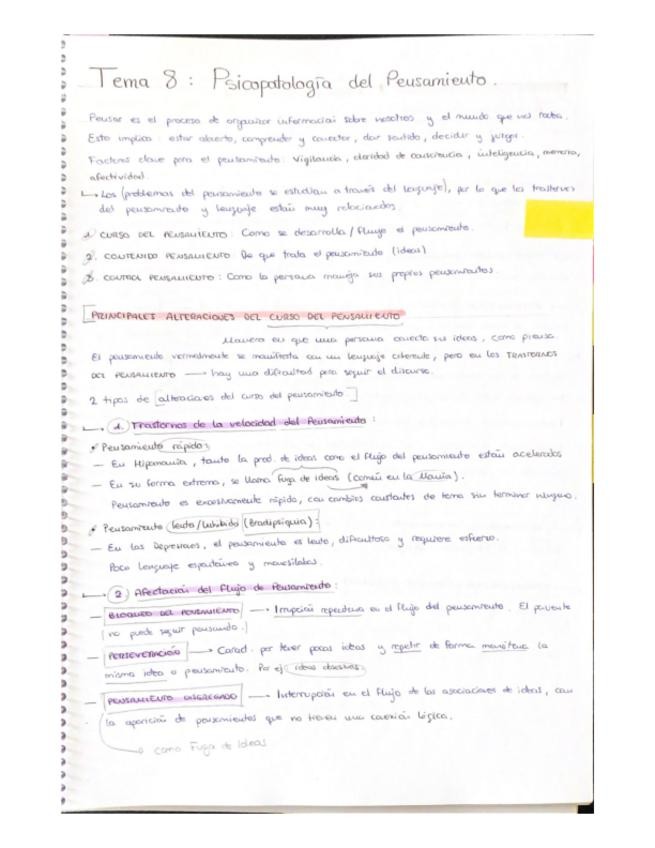 Tema 8: Psicopatología del Pensamiento.
Pensar es el proceso de organizar información sobre nosotros y el mundo que nos rodea.
Esto implica: estar abierto, comprender y conectar, dar sentido, decidir y juzgar.
Factores clave para el pensamiento: Vigilancia, claridad de conciencia, inteligencia, memoria,
afectividad.
Los (problemas del pensamiento se estudian a través del lenguaje), por lo que los trastornos
del pensamiento y lenguaje están muy relacionados.
1. CURSO DEL PENSAMIENTO: Como se desarrolla / fluye el pensamiento.
2. CONTENIDO PENSAMIENTO De que trata el pensamiento (ideas)
3. CONTROL PENSAMIENTO: Como la persona maneja sus propios pensamientos.
PRINCIPALES ALTERACIONES DEL CURSO DEL PENSAMIENTO
Manera en que una persona conecta sus ideas, como piensa.
El pensamiento normalmente se manifiesta con un lenguaje coherente, pero en los TRASTORNOS
DEL PENSAMIENTO → hay una dificultad para seguir el discurso.
2 tipos de [alteraciones del curso del pensamiento]
1. Trastornos de la velocidad del Pensamiento:
Pensamiento rápido:
- En Hipomanía, tanto la prod. de ideas como el flujo del pensamiento están acelerados
- En su forma extrema, se llama fuga de ideas (común en la Manía).
Pensamiento es excesivamente rápido, con cambios constantes de tema sin terminar ninguno.
Pensamiento lento/Inhibido (Bradipsiquia):
- En las Depresiones, el pensamiento es lento, dificultoso y requiere esfuerzo.
Poco lenguaje espontáneo y monosílabos.
2) Afectación del flujo de Pensamiento:
- BLOQUEO DEL PENSAMIENTO → Irrupción repentina en el flujo del pensamiento. El paciente
(no puede seguir pensando.)
- PERSEVERACIÓN → Caract. por tener pocas ideas y repetir de forma monótona la
misma idea o pensamiento. Por ej ideas obsesivas.
- PENSAMIENTO DISGREGADO → Interrupción en el flujo de las asociaciones de ideas, con
la aparición de pensamientos que no tienen una conexión lógica.
como Fuga de Ideas